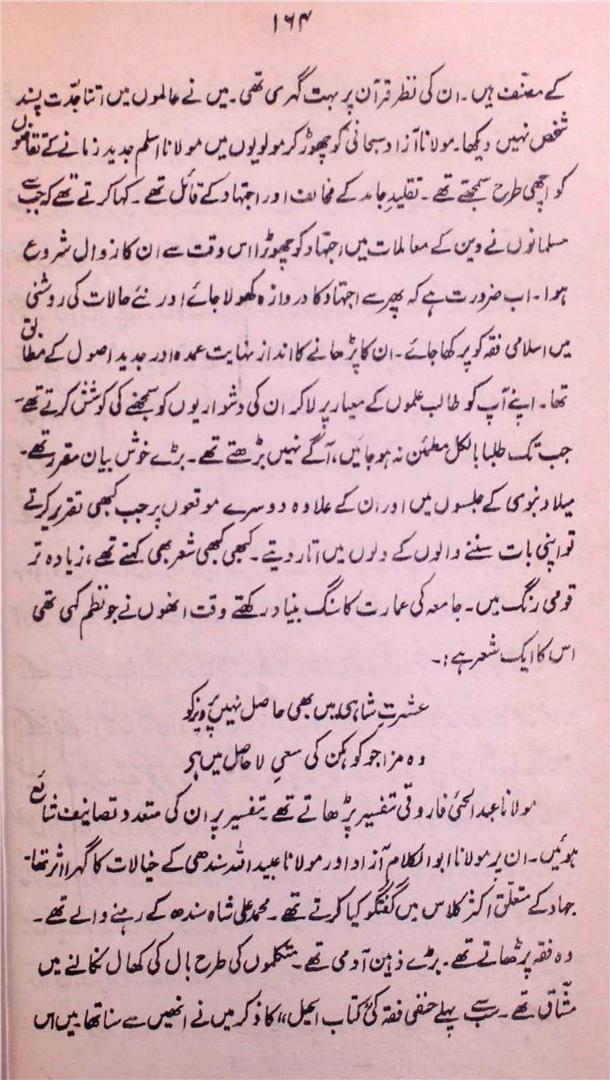 ۱۶۴
کے مصنّف ہیں۔ ان کی نظر قرآن پر بہت گہری تھی۔ میں نے عالموں میں اتنا جدّت پسند
شخص نہیں دیکھا۔ مولانا آزاد سبحانی کو چھوڑ کر مولویوں میں مولانا اسلم جدید زمانے کے تقاضوں
کو اچھی طرح سمجھتے تھے۔ تقلیدِ جامد کے مخالف اور اجتہاد کے قائل تھے۔ کہا کرتے تھے کہ جب سے
مسلمانوں نے دین کے معاملات میں اجتہاد کو چھوڑا اس وقت سے ان کا زوال شروع
ہوا۔ اب ضرورت ہے کہ پھر سے اجتہاد کا دروازہ کھولا جائے اور نئے حالات کی روشنی
میں اسلامی فقہ کو پرکھا جائے۔ ان کا پڑھانے کا انداز نہایت عمدہ اور جدید اصول کے مطابق
تھا۔ اپنے آپ کو طالب علموں کے معیار پر لا کر ان کی دشواریوں کو سمجھنے کی کوشش کرتے تھے۔
جب تک طلبا بالکل مطمئن نہ ہو جائیں، آگے نہیں بڑھتے تھے۔ بڑے خوش بیان مقرر تھے۔
میلاد نبوی کے جلسوں میں اور ان کے علاوہ دوسرے موقعوں پر جب کبھی تقریر کرتے
تو اپنی بات سننے والوں کے دلوں میں اتار دیتے۔ کبھی کبھی شعر بھی کہتے تھے، زیادہ تر
قومی رنگ میں۔ جامعہ کی عمارت کا سنگ بنیاد رکھتے وقت انھوں نے جو نظم کہی تھی
اس کا ایک شعر ہے:۔
عشرتِ شاہی میں بھی حاصل نہیں پرویز کو
وہ مزا جو کوہکن کی سعیِ لا حاصل میں ہے
مولانا عبد الحئی فاروقی تفسیر پڑھاتے تھے۔ تفسیر پر ان کی متعدد تصانیف شائع
ہوئیں۔ ان پر مولانا ابو الکلام آزاد اور مولانا عبید اللہ سندھی کے خیالات کا گہرا اثر تھا۔
جہاد کے متعلّق اکثر کلاس میں گفتگو کیا کرتے تھے۔ محمد علی شاہ سندھ کے رہنے والے تھے۔
وہ فقہ پڑھاتے تھے۔ بڑے ذہین آدمی تھے۔ متکلموں کی طرح بال کی کھال نکالنے میں
مشّاق تھے۔ سب سے پہلے حنفی فقہ کی کتاب الحیل" کا ذکر میں نے انھیں سے سنا تھا۔ میں اس